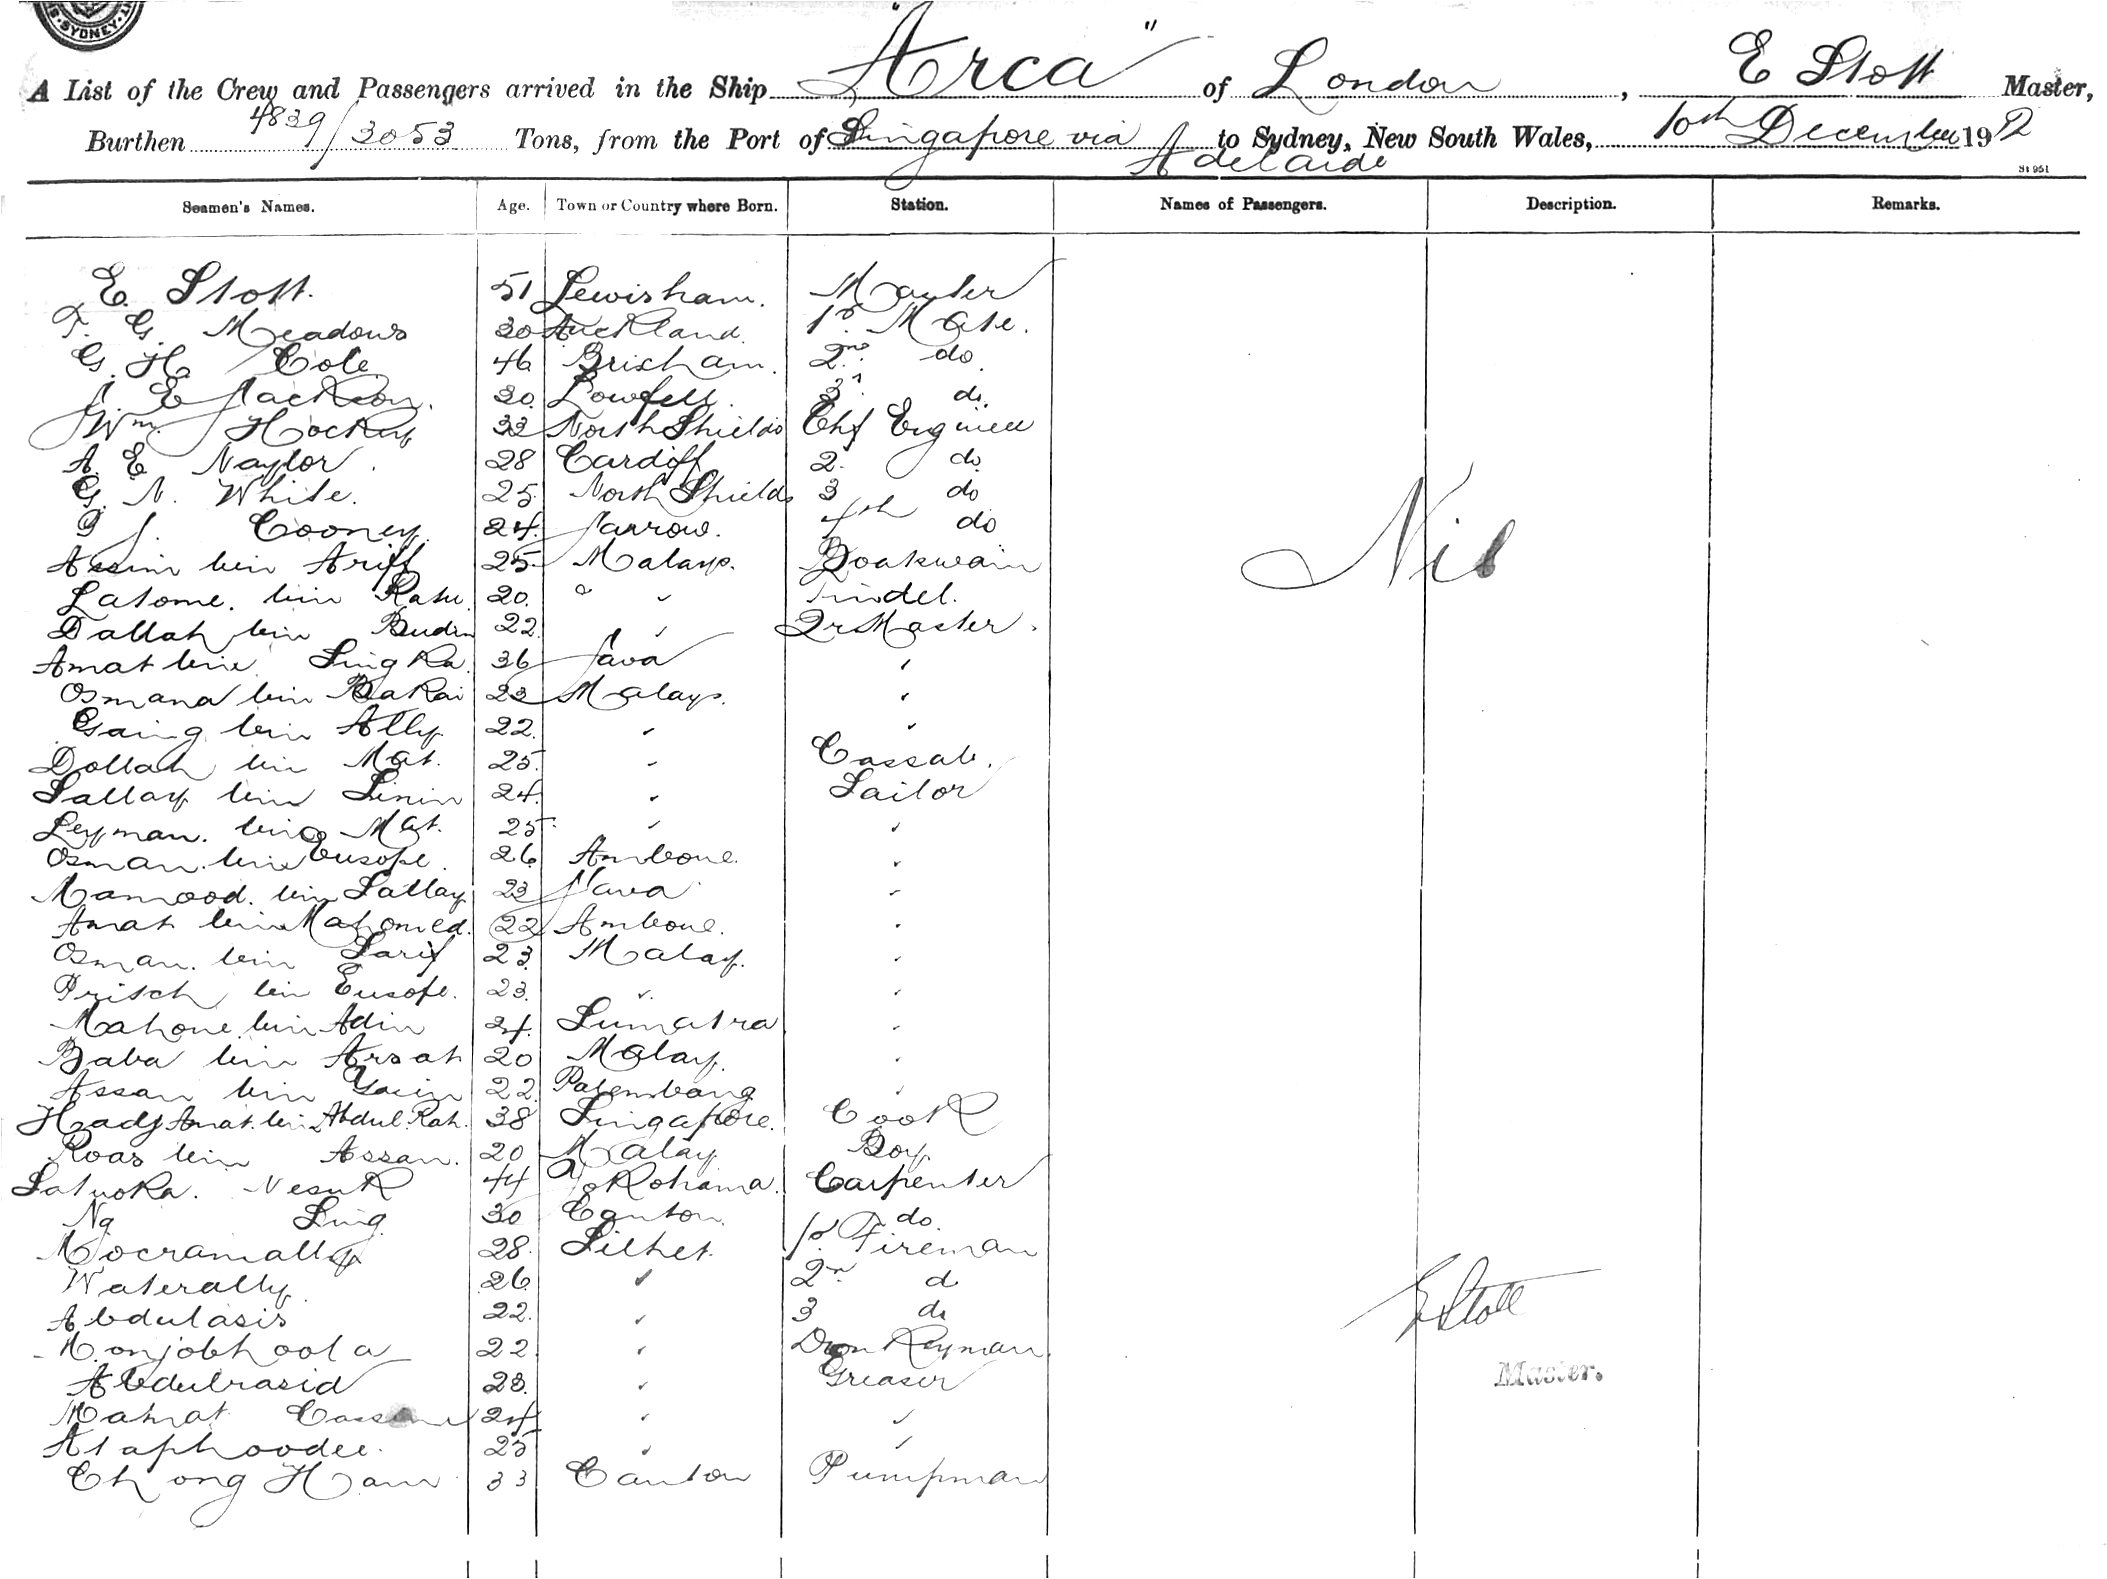 SYDNEY
A List of the Crew and Passengers arrived in the Ship "Arca" of London, E Stott Master,
Burthen 4839/3053 Tons, from the Port of Singapore via Adelaide to Sydney, New South Wales, 10th December 1912
St 951
Seamen's Names. Age. Town or Country where Born. Station. Names of Passengers. Description. Remarks.
E. Stott. 51 Lewisham. Master
T. G. Meadows 30 Auckland. 1st Mate.
G. H. Cole 46 Brixham. 2nd do
J. E Jackson. 30. Lowfell. 3rd do.
Wm. Hockey 32 North Shields Chf Engineer
A. E. Naylor. 28 Cardiff 2. do
G. N. White. 25 North Shields 3 do
J. Cooney. 24. Jarrow. 4th do
Assim bin Ariff 25. Malays. Boatswain
Latome. bin Ratu. 20. " " Tindel.
Dallah bin Budin 22. " QrMaster.
Amat bin Singka 36 Java "
Osmana bin Bakai 23 Malays. "
Gaing bin Ally. 22. " "
Dollah bin Mat. 25. " Cassab.
Sallay bin Sinin 24. " Sailor
Leyman. bin Mat. 25. " "
Osman. bin Eusope. 26 Ambone. "
Mamood. bin Sallay 23 Java "
Amat bin Mahomed. 22 Ambone. "
Osman. bin Sarif 23. Malay. "
Pritsch bin Eusofe. 23. " "
Mahone bin Adin 24. Sumatra "
Baba bin Arsat 20 Malay. "
Assan bin Yacin 22. Palembang "
Hadj Amat. bin Abdul. Rah. 38 Singapore. Cook
Roas bin Assan. 20 Malay Boy.
Satuoka. Nesuk 44 Yokohama. Carpenter
Ng Sing 30 Canton. do.
Mocramally 28. Silhet. 1st Fireman
Waterally. 26. " 2nd d
Abdulasis 22. " 3 do
Monjobhoola 22. " Donkeyman.
Abdulrasid 28. " Greaser
Mahat 24 " "
Ataphoodee. 25 " "
Chong Ham 33 Canton Pumpman
Nil
E Stott
Master.